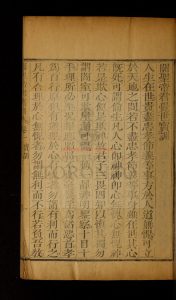 關聖帝君覺世寶訓
人生在世貴盡忠孝節義等事方於人道無愧可立
於天地之間若不盡忠孝節義等事身雖在世其心
既死可謂偷生凡人心即神神即心無愧心無愧神
若是欺心便是欺神故君子三畏四知以慎其獨勿
謂暗室可欺屋漏可愧一動一靜神明鑒察十目十
手理所必至況報應昭昭不爽毫髮淫為萬惡首孝
為百行原但有逆理於心有愧者勿謂有利而行之
凡有合理於心無愧者勿謂無利而不行若負吾教